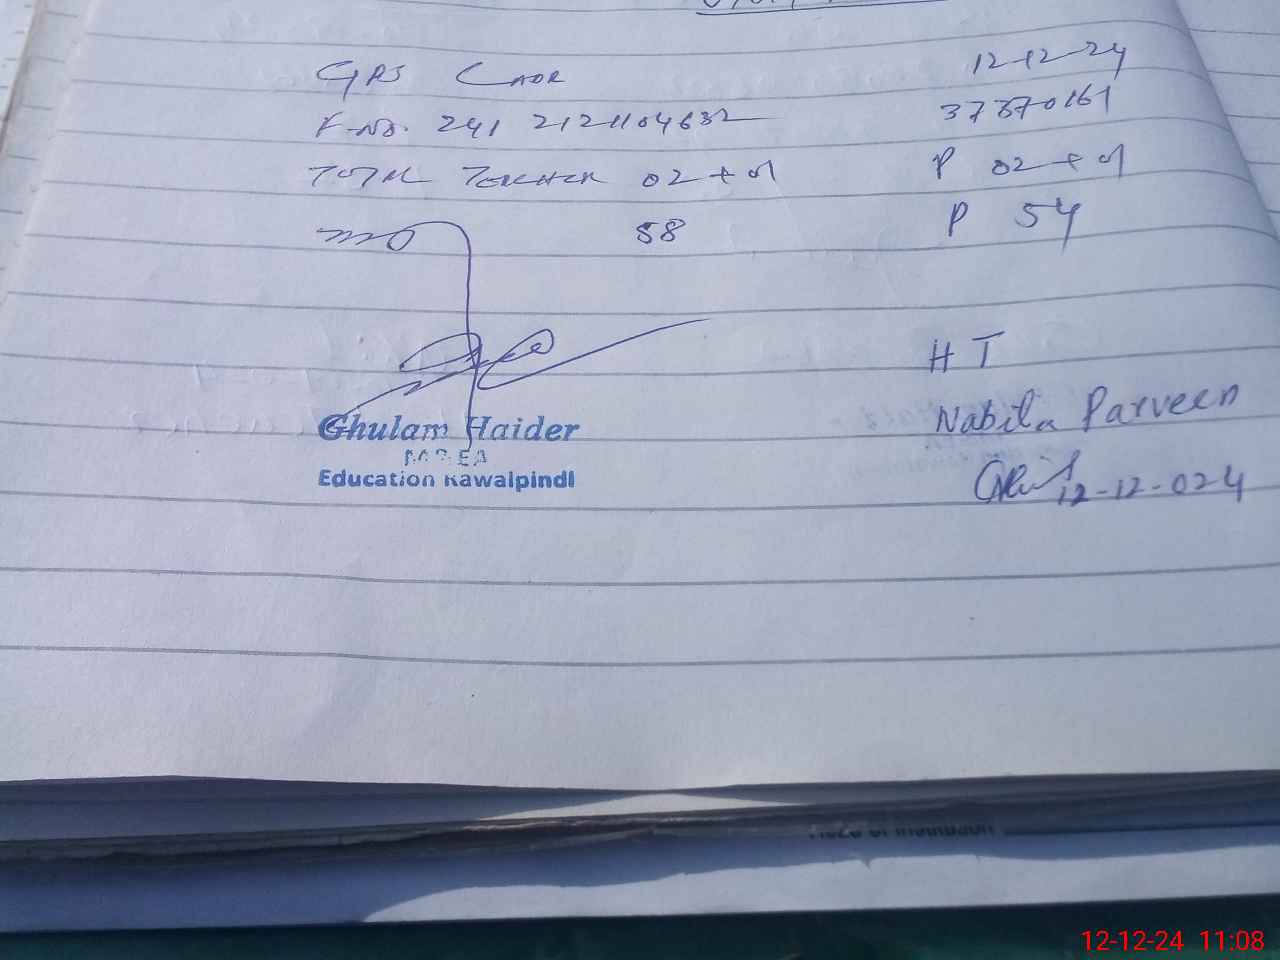 GPS 12-12-24
F-No. 241 2121104632 37370161
TOTAL TEACHER 02 + 01 P 02 + 01
58 P 54
H T
Ghulam Haider Nabila Parveen
M&EA 12-12-024
Education Rawalpindi
12-12-24 11:08